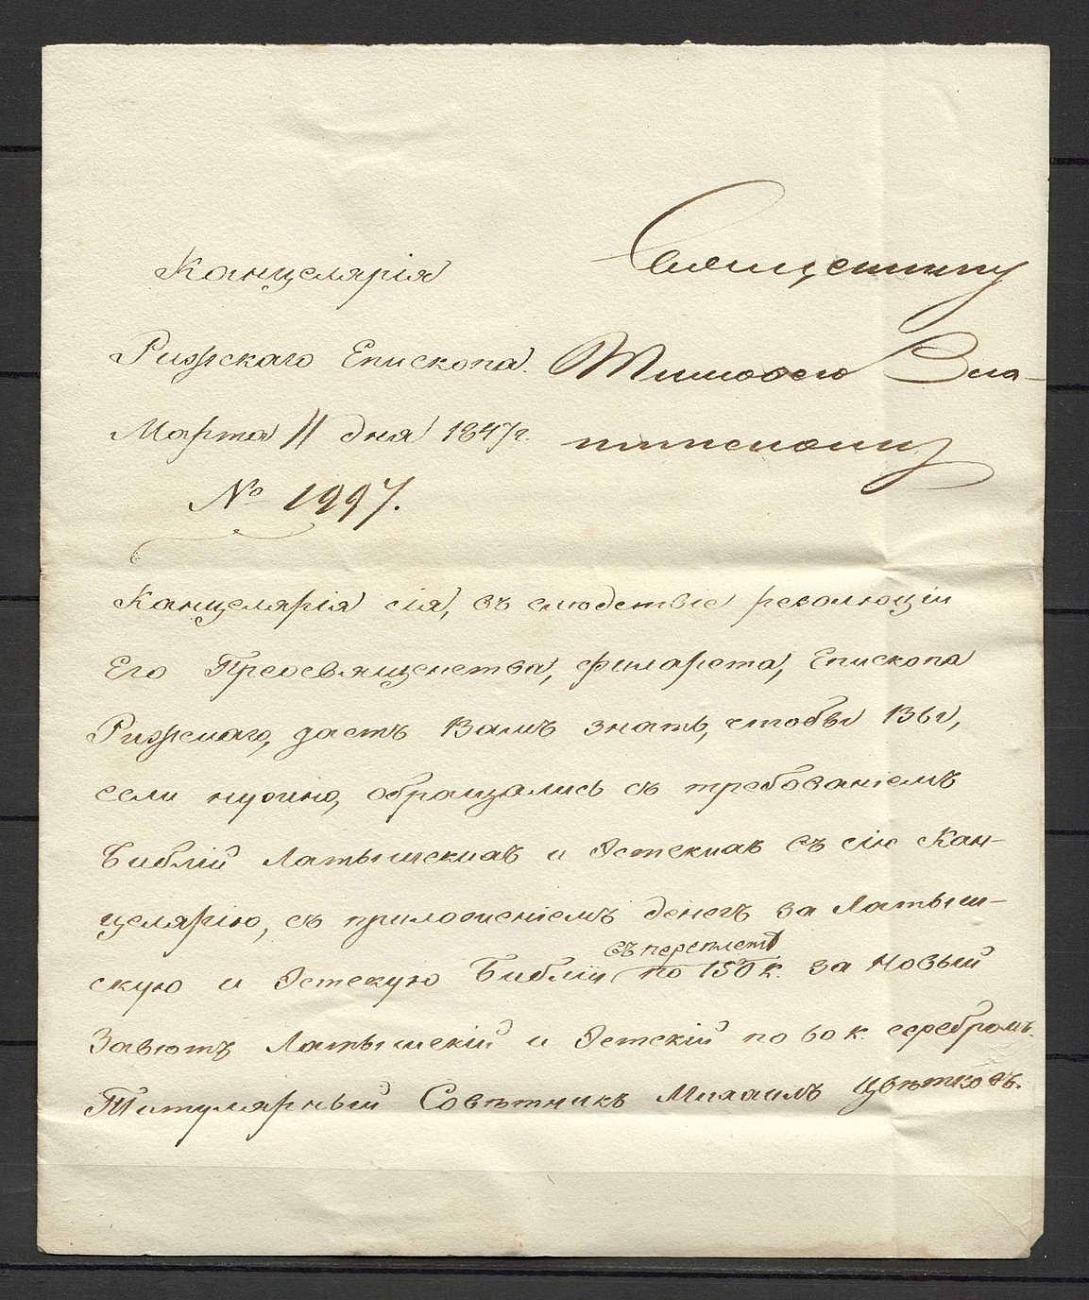 Канцелярія
Рижскаго Епископа.
Марта 11 дня 1847 г.
№ 1997.
Священнику
Тимофею
Канцелярія сія, въ слѣдствіе резолюціи
Его Преосвященства, Филарета, Епископа
Рижскаго, даетъ Вамъ знать, чтобы Вы,
если нужно, обращались съ требованіемъ
Библій Латышскихъ и Эстскихъ въ сію Кан-
целярію, съ приложеніемъ денегъ за Латыш-
скую и Эстскую Библіи, съ переплет. по 150 к. за Новый
Завѣтъ Латышскій и Эстскій по 60 к. серебромъ.
Титулярный Совѣтникъ Михаилъ Цвѣтковъ.